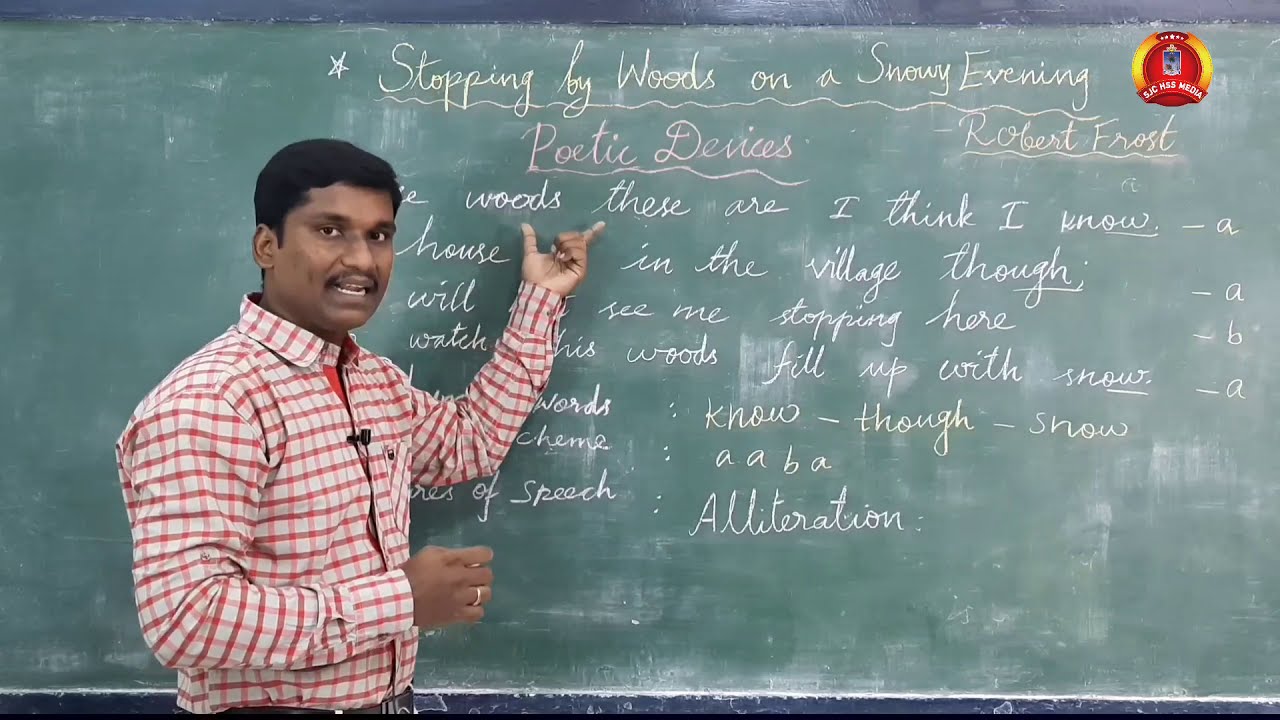 Stopping by Woods on a Snowy Evening
SJC HSS MEDIA
Poetic Devices
- Robert Frost
a
woods these are I think I know. - a
house in the village though; - a
will see me stopping here - b
watch his woods fill up with snow. - a
words : know - though - snow
cheme : a a b a
res of Speech : Alliteration: